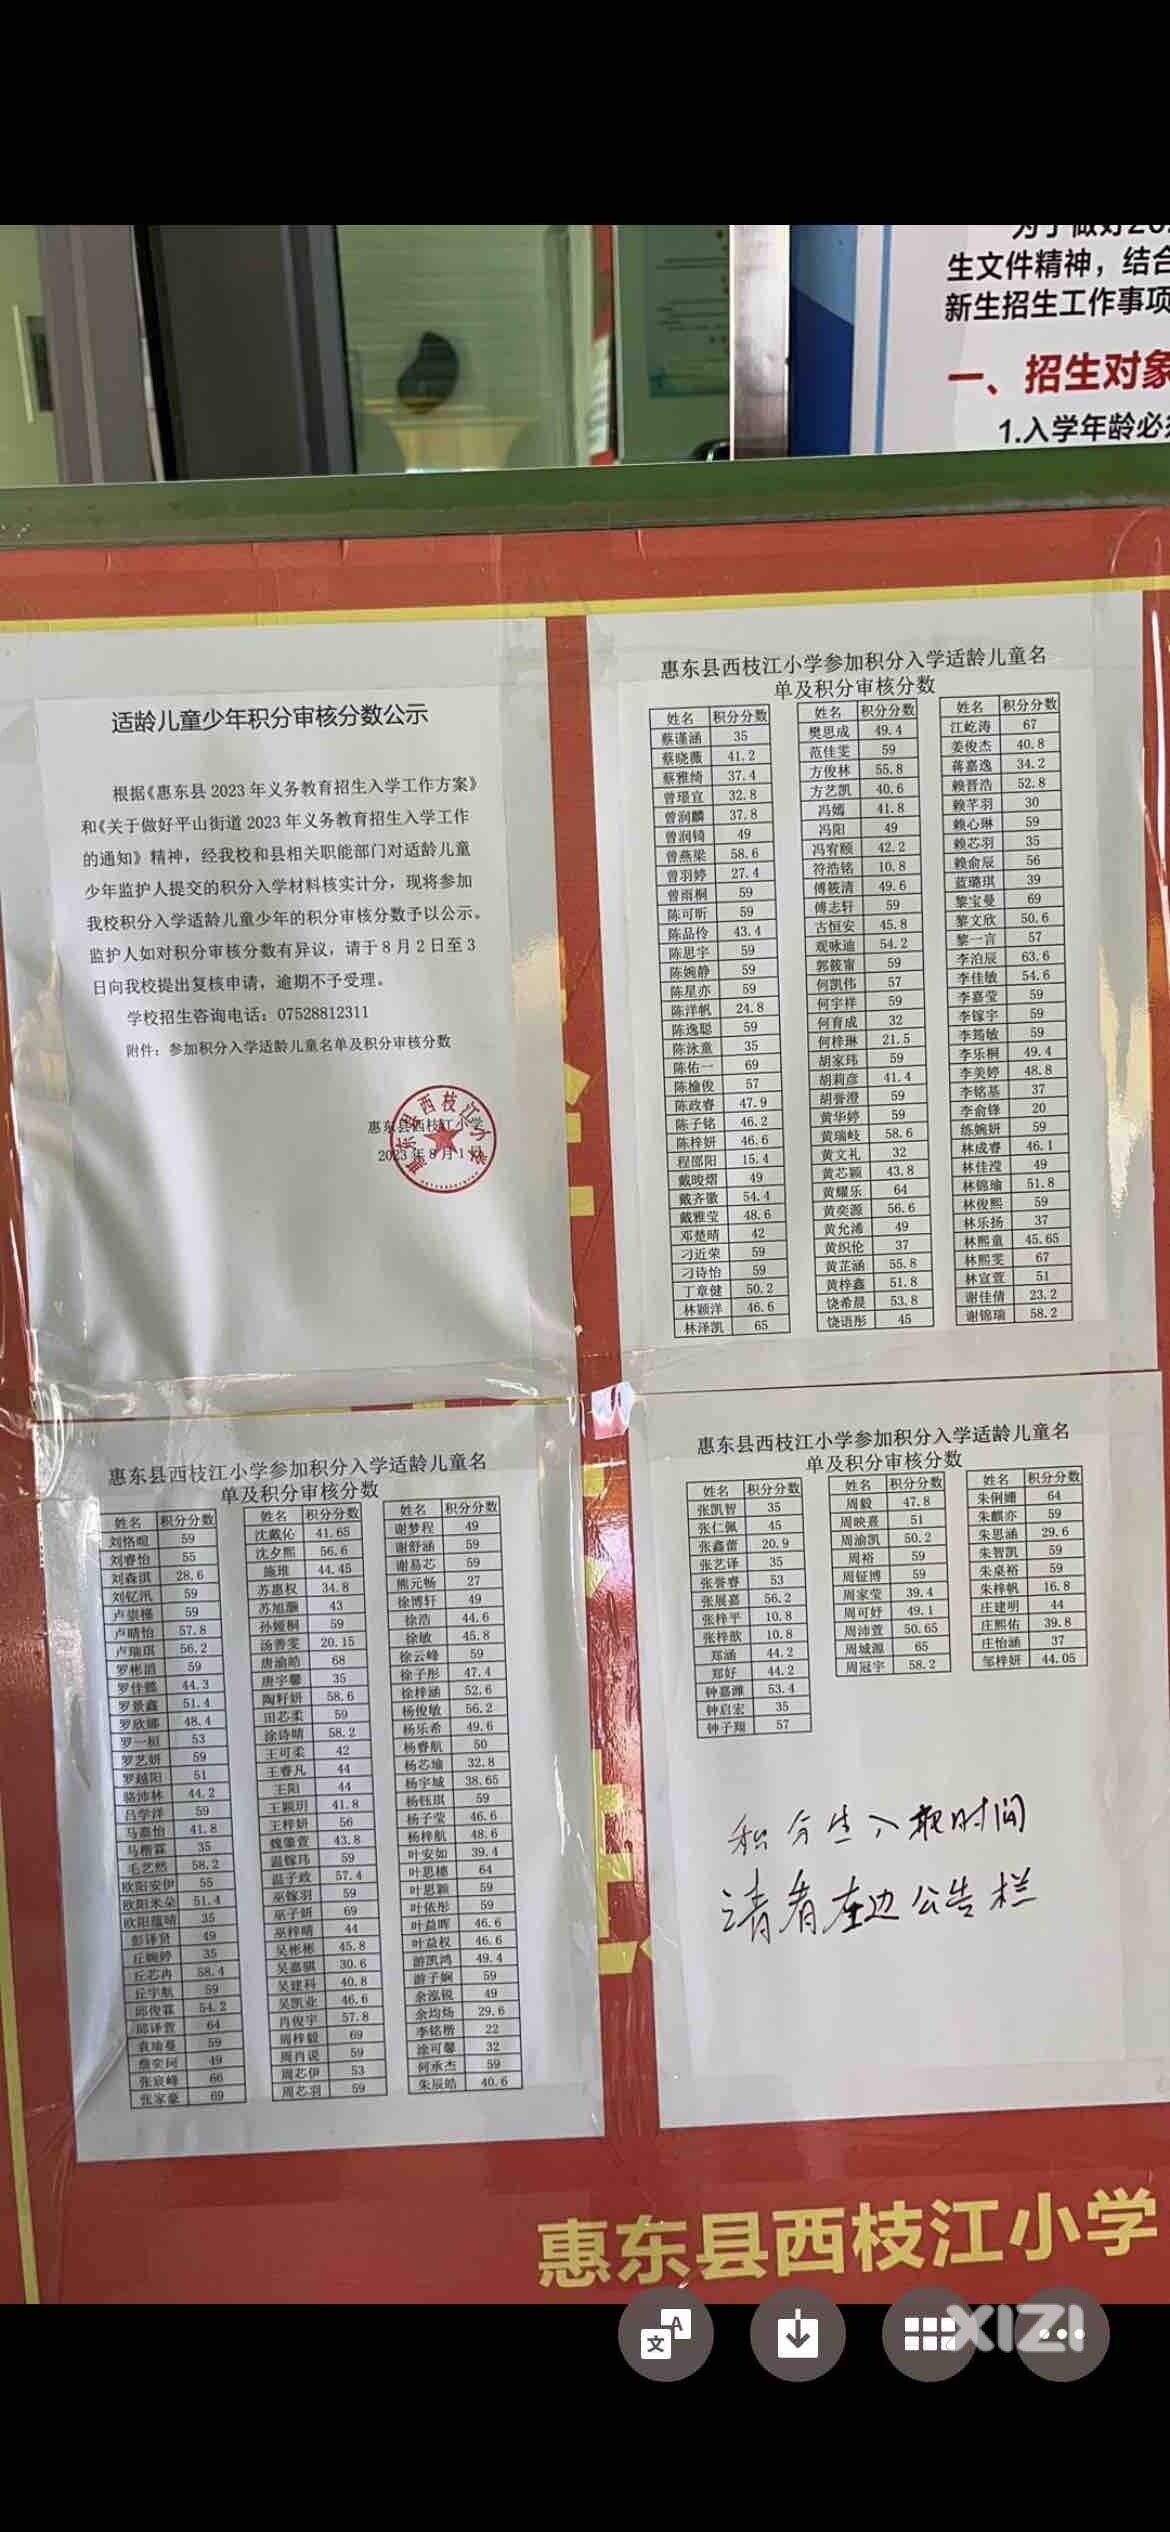 为了做好20
生文件精神，结合
新生招生工作事项
一、招生对象
1.入学年龄必须
适龄儿童少年积分审核分数公示
根据《惠东县 2023 年义务教育招生入学工作方案》
和《关于做好平山街道 2023 年义务教育招生入学工作
的通知》精神，经我校和县相关职能部门对适龄儿童
少年监护人提交的积分入学材料核实计分，现将参加
我校积分入学适龄儿童少年的积分审核分数予以公示。
监护人如对积分审核分数有异议，请于 8 月 2 日至 3
日向我校提出复核申请，逾期不予受理。
学校招生咨询电话：07528812311
附件：参加积分入学适龄儿童名单及积分审核分数
惠东县西枝江小学
2023 年 8 月 1 日
惠东县西枝江小学参加积分入学适龄儿童名
单及积分审核分数
姓名 积分分数
蔡谨涵 35
蔡晓薇 41.2
蔡雅绮 37.4
曾璟宣 32.8
曾润麟 37.8
曾润锜 49
曾燕梁 58.6
曾羽婷 27.4
曾雨桐 59
陈可昕 59
陈品伶 43.4
陈思宇 59
陈婉静 59
陈星亦 59
陈洋帆 24.8
陈逸聪 59
陈泳童 35
陈佑一 69
陈榆俊 57
陈政睿 47.9
陈子铭 46.2
陈梓妍 46.6
程邵阳 15.4
戴晙熠 49
戴齐徽 54.4
戴雅莹 48.6
邓楚晴 42
刁近荣 59
刁诗怡 59
丁章健 50.2
林颖洋 46.6
林泽凯 65
姓名 积分分数
樊思成 49.4
范佳雯 59
方俊林 55.8
方艺凯 40.6
冯嫣 41.8
冯阳 49
冯宥颐 42.2
符浩铭 10.8
傅筱清 49.6
傅志轩 59
古恒安 45.8
观咏迪 54.2
郭筱甯 59
何凯伟 57
何宇祥 59
何育成 32
何梓琳 21.5
胡家玮 59
胡莉彦 41.4
胡誉澄 59
黄华婷 59
黄瑞岐 58.6
黄文礼 32
黄芯颖 43.8
黄耀乐 64
黄奕源 56.6
黄允浠 49
黄织伦 37
黄芷涵 55.8
黄梓鑫 51.8
饶希晨 53.8
饶语彤 45
姓名 积分分数
江屹涛 67
姜俊杰 40.8
蒋嘉逸 34.2
赖晋浩 52.8
赖芊羽 30
赖心琳 59
赖芯羽 35
赖俞辰 56
蓝璐琪 39
黎宝曼 69
黎文欣 50.6
黎一言 57
李泊辰 63.6
李佳敏 54.6
李嘉莹 59
李镓宇 59
李筠敏 59
李乐桐 49.4
李美婷 48.8
李铭基 37
李俞锋 20
练婉妍 59
林成睿 46.1
林佳滢 49
林锦瑜 51.8
林俊熙 59
林乐扬 37
林熙童 45.65
林熙雯 67
林宣萱 51
谢佳倩 23.2
谢锦瑞 58.2
惠东县西枝江小学参加积分入学适龄儿童名
单及积分审核分数
姓名 积分分数
刘恪暄 59
刘睿怡 55
刘森淇 28.6
刘钇汛 59
卢崇槿 59
卢晴怡 57.8
卢瑞琪 56.2
罗彬滔 59
罗佳懿 44.3
罗景鑫 51.4
罗欣娜 48.4
罗一桓 53
罗艺妍 59
罗越阳 51
骆沛林 44.2
吕学洋 59
马嘉怡 41.8
马楷霖 35
毛艺然 58.2
欧阳安伊 55
欧阳米朵 51.4
欧阳蕴晴 35
彭译贤 49
丘婉婷 35
丘芯冉 58.4
丘宇航 59
邱俊霖 54.2
邱译萱 64
袁瑜蔓 59
詹奕珂 49
张宸峰 66
张家豪 69
姓名 积分分数
沈戴伈 41.65
沈夕熙 56.6
施堆 44.45
苏惠权 34.8
苏旭灏 43
孙娅桐 59
汤善雯 20.15
唐渝皓 68
唐宇馨 35
陶籽妍 58.6
田芯柔 59
涂诗晴 58.2
王可柔 42
王睿凡 44
王阳 44
王颖玥 41.8
王梓妍 56
魏肇萱 43.8
温镓玮 59
温子政 57.4
巫镓羽 59
巫子妍 69
巫梓晴 44
吴彬彬 45.8
吴嘉骐 30.6
吴建科 40.8
吴凯业 46.6
肖俊宇 57.8
周梓毅 69
周肖说 59
周芯伊 53
周芯羽 59
姓名 积分分数
谢梦程 49
谢舒涵 59
谢易芯 59
熊元畅 27
徐博轩 49
徐浩 44.6
徐敏 45.8
徐云峰 59
徐子彤 47.4
徐梓涵 52.6
杨俊敏 56.2
杨乐希 49.6
杨睿航 50
杨芯瑜 32.8
杨宇城 38.65
杨钰琪 59
杨子莹 46.6
杨梓航 48.6
叶安如 39.4
叶思穗 64
叶思颖 59
叶依彤 59
叶益晖 46.6
叶益权 46.6
游凯鸿 49.4
游子娴 59
余泓锐 49
余均炀 29.6
李铭楷 22
涂可馨 32
何承杰 59
朱辰皓 40.6
惠东县西枝江小学参加积分入学适龄儿童名
单及积分审核分数
姓名 积分分数
张凯智 35
张仁佩 45
张鑫蕾 20.9
张艺译 35
张誉睿 53
张展嘉 56.2
张梓平 10.8
张梓歆 10.8
郑涵 44.2
郑好 44.2
钟嘉潍 53.4
钟启宏 35
钟子翔 57
姓名 积分分数
周毅 47.8
周映熹 51
周渝凯 50.2
周裕 59
周钲博 59
周家莹 39.4
周可妤 49.1
周沛萱 50.65
周城源 65
周冠宇 58.2
姓名 积分分数
朱俐姗 64
朱麒亦 59
朱思涵 29.6
朱智凯 59
朱桌裕 59
朱梓帆 16.8
庄建明 44
庄熙佑 39.8
庄怡涵 37
邹梓妍 44.05
积分生入取时间
请看左边公告栏
惠东县西枝江小学
XIZI